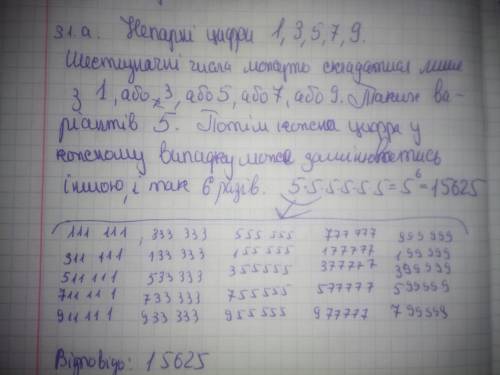 31.а. Непарні цифри 1, 3, 5, 7, 9.
Шестицифрові числа можуть складатися лише
з 1, або з 3, або 5, або 7, або 9. Таких ва-
ріантів 5. Потім кожна цифра у
кожному випадку може замінюватись
іншою, і так 6 разів. 5·5·5·5·5·5=5⁶=15625
111 111, 333 333 555 555 777 777 999 999
311 111 133 333 155 555 177777 199 999
511 111 533 333 355555 377777 399 999
711 11 1 733 333 755555 577777 599999
911 111 933 333 955 555 977777 799999
Відповідь: 15625